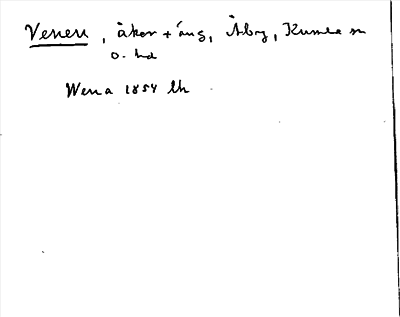 Venen, åker + äng, Åby, Kumla sn
o. hd
Wena 1854 lh